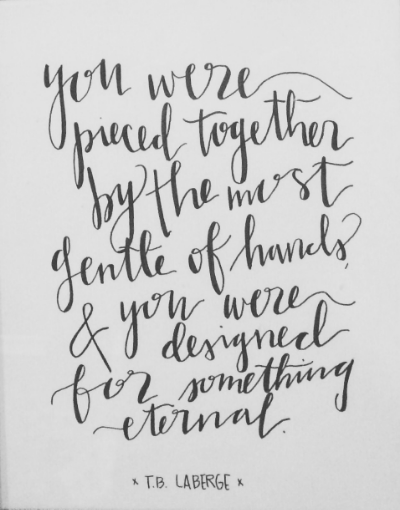 you were
pieced together
by the most
gentle of hands,
& you were
designed
for something
eternal.
x T.B. LABERGE x